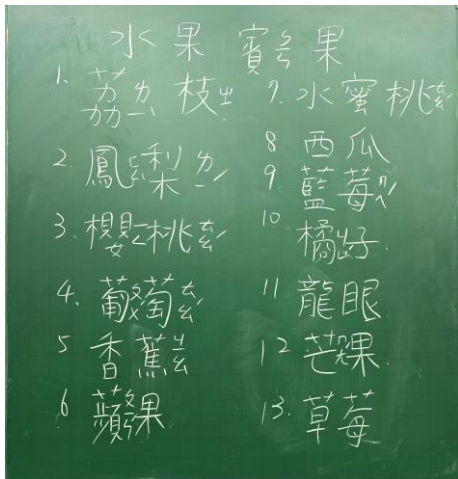 水果 賓果
1. 荔ㄌㄧˋ枝ㄓ
2. 鳳ㄈㄥˋ梨ㄌㄧˊ
3. 櫻ㄧㄥ桃ㄊㄠˊ
4. 葡ㄆㄨˊ萄ㄊㄠˊ
5 香蕉ㄐㄧㄠ
6 蘋果
7. 水蜜桃ㄊㄠˊ
8 西瓜
9. 藍莓ㄇㄟˊ
10 橘子
11 龍眼
12 芒果
13. 草莓